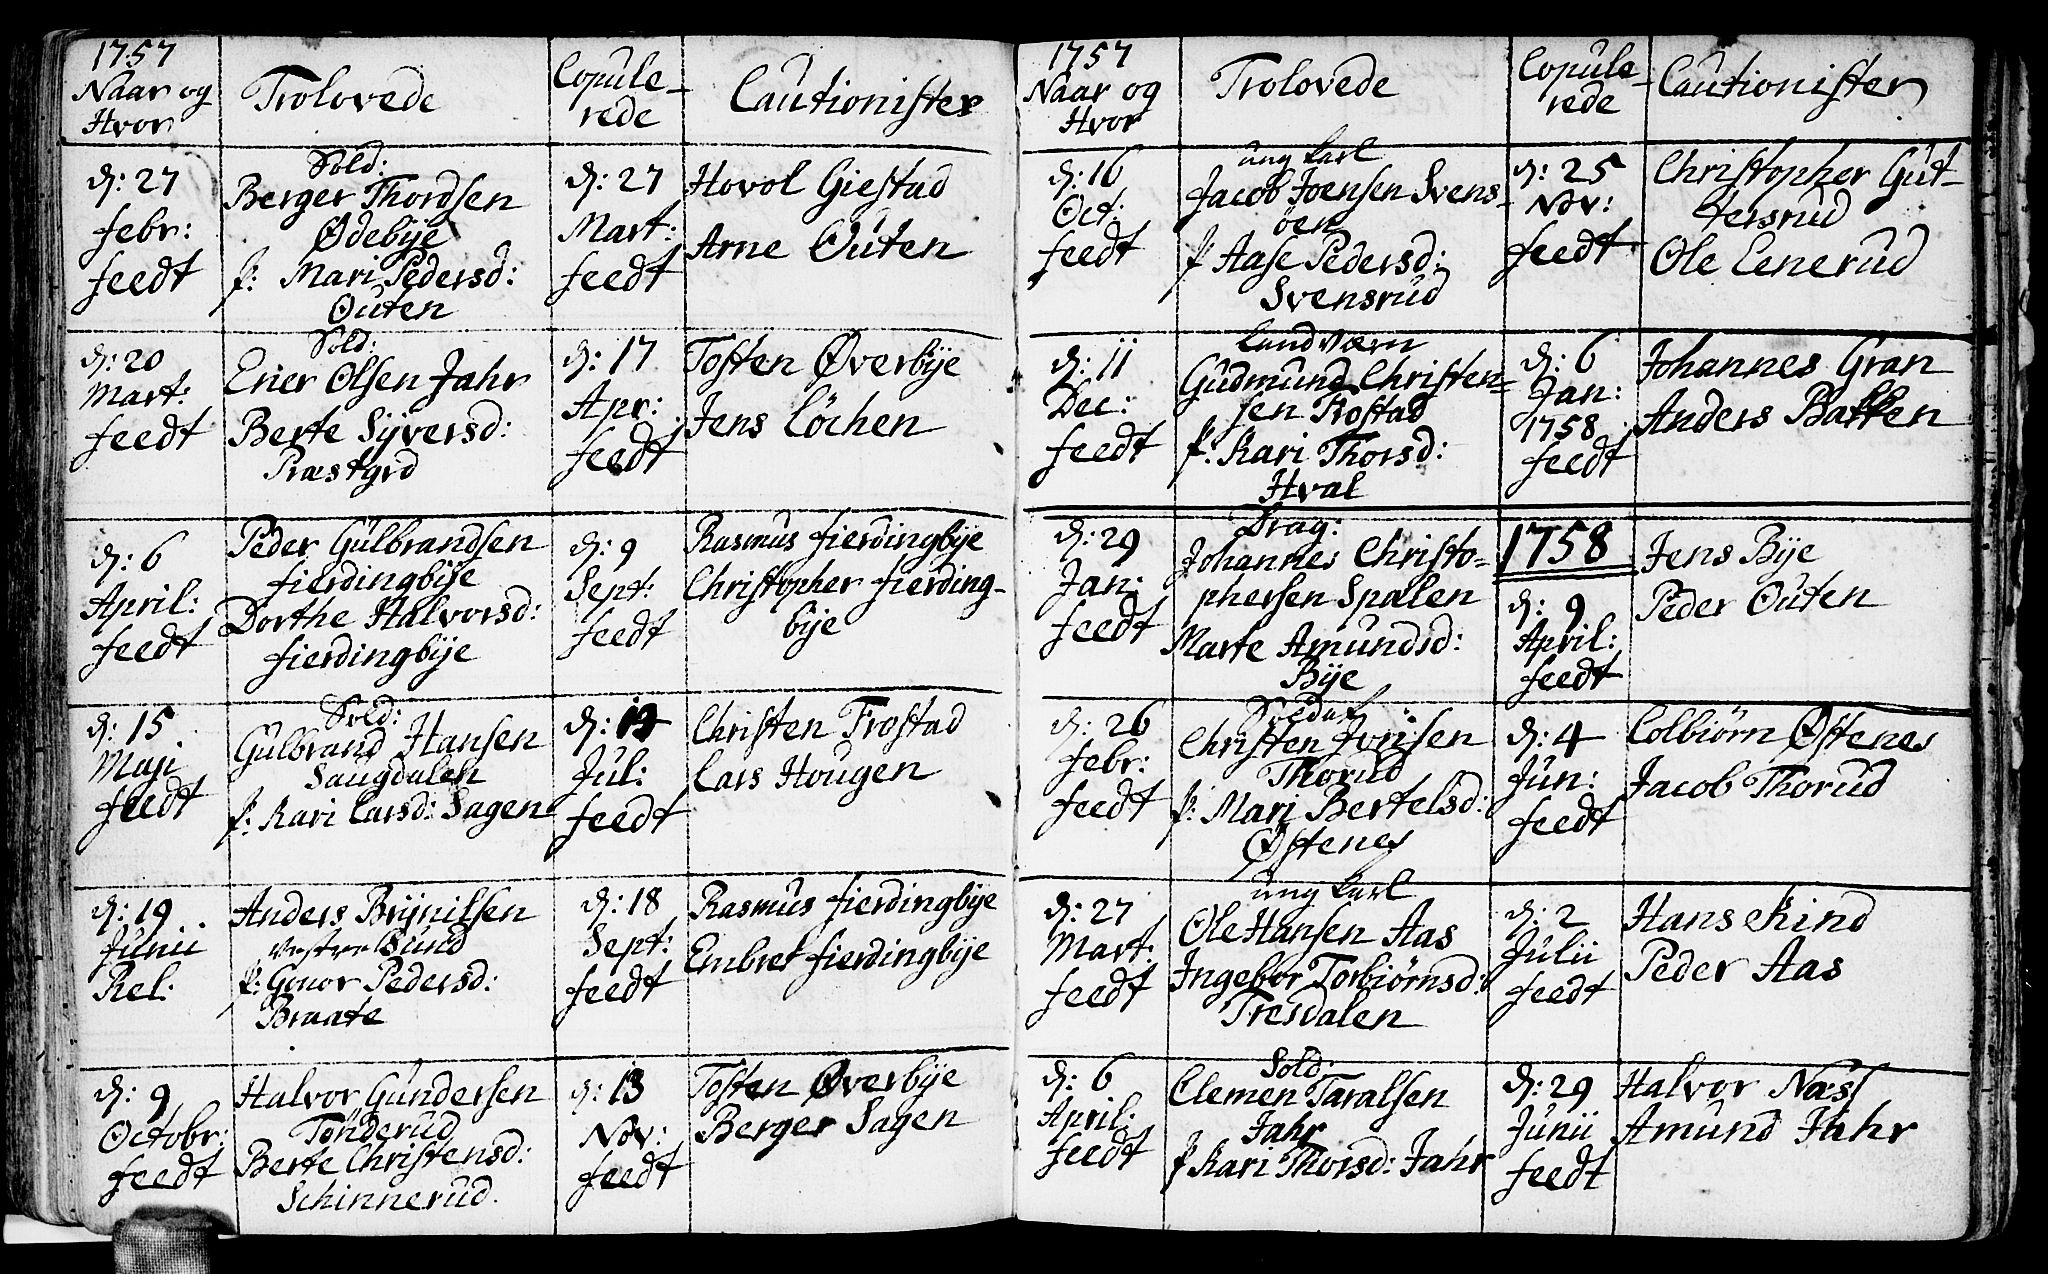 1757
Naar og
Hvor
Trolovede
Copule-
rede
Cautionister
d: 27
febr:
feedt
Sold:
Berger Thordsen
Ødebÿe
p: Mari Pedersd:
Outen
d: 27
Mart:
feedt
Hovol Giestad
Arne Outen
d: 20
Mart:
feedt
Sold:
Ener Olsen Jahr
Berte Sÿversd:
Præstgrd
d: 17
Apr:
feedt
Tosten Øverbÿe
Jens Löchen
d: 6
April:
feedt
Peder Gulbrandsen
fierdingbÿe
Dorthe Halvorsd:
fierdingbÿe
d: 9
Sept:
feedt
Rasmus fierdingbÿe
Christopher fierding-
bÿe
d: 15
Maji
feedt
Sold:
Gulbrand Hansen
Saugdalen
p: Kari Larsd: Sagen
d:
Jul:
feedt
Christen Frostad
Lars Hougen
d: 19
Junii
Rel:
Anders Brÿnilsen
Vestre Sund
p: Gonor Pedersd:
Braate
d: 18
Sept:
feedt
Rasmus fierdingbÿe
Embret fierdingbÿe
d: 9
Octobr:
feedt
Halvor Gundersen
Tönderud
Berte Christensd:
Schinnerud.
d: 13
Nov:
feedt
Tosten Øverbÿe
Berger Sagen
1757
Naar og
Hvor
Trolovede
Copule-
rede
Cautionister
d: 16
Oct:
feedt
ung karl
Jacob Joensen Svens-
öen
p Aase Pedersd:
Svensrud
d: 25
Nov:
feedt
Christopher Gut-
tersrud
Ole Lenerud
d: 11
Dec:
feedt
Landværn
Gudmund Christen-
sen Frostad
p: Kari Thorsd:
Hval
d: 6
Jan:
1758
feedt
Johannes Gran
Anders Bakken
d: 29
Jan:
feedt
Drag:
Johannes Christo-
phersen Spalen
Marte Amundsd:
Bÿe
1758
d: 9
April:
feedt
Jens Bÿe
Peder Outen
d: 26
febr:
feedt
Soldat
Christen Jversen
Thorud
p: Mari Bertelsd:
Østenes
d: 4
Jun:
feedt
Colbiörn Østenes
Jacob Thorud
d: 27
Mart:
feedt
ung karl
Ole Hansen Aas
Ingebor Torbiörnsd:
Tresdalen
d: 2
Julii
feedt
Hans Kind
Peder Aas
d: 6
April:
feedt
Sold:
Clemen Taralsen
Jahr
p Kari Thorsd: Jahr
d: 29
Junii
feedt
Halvor Næss
Amund Jahr